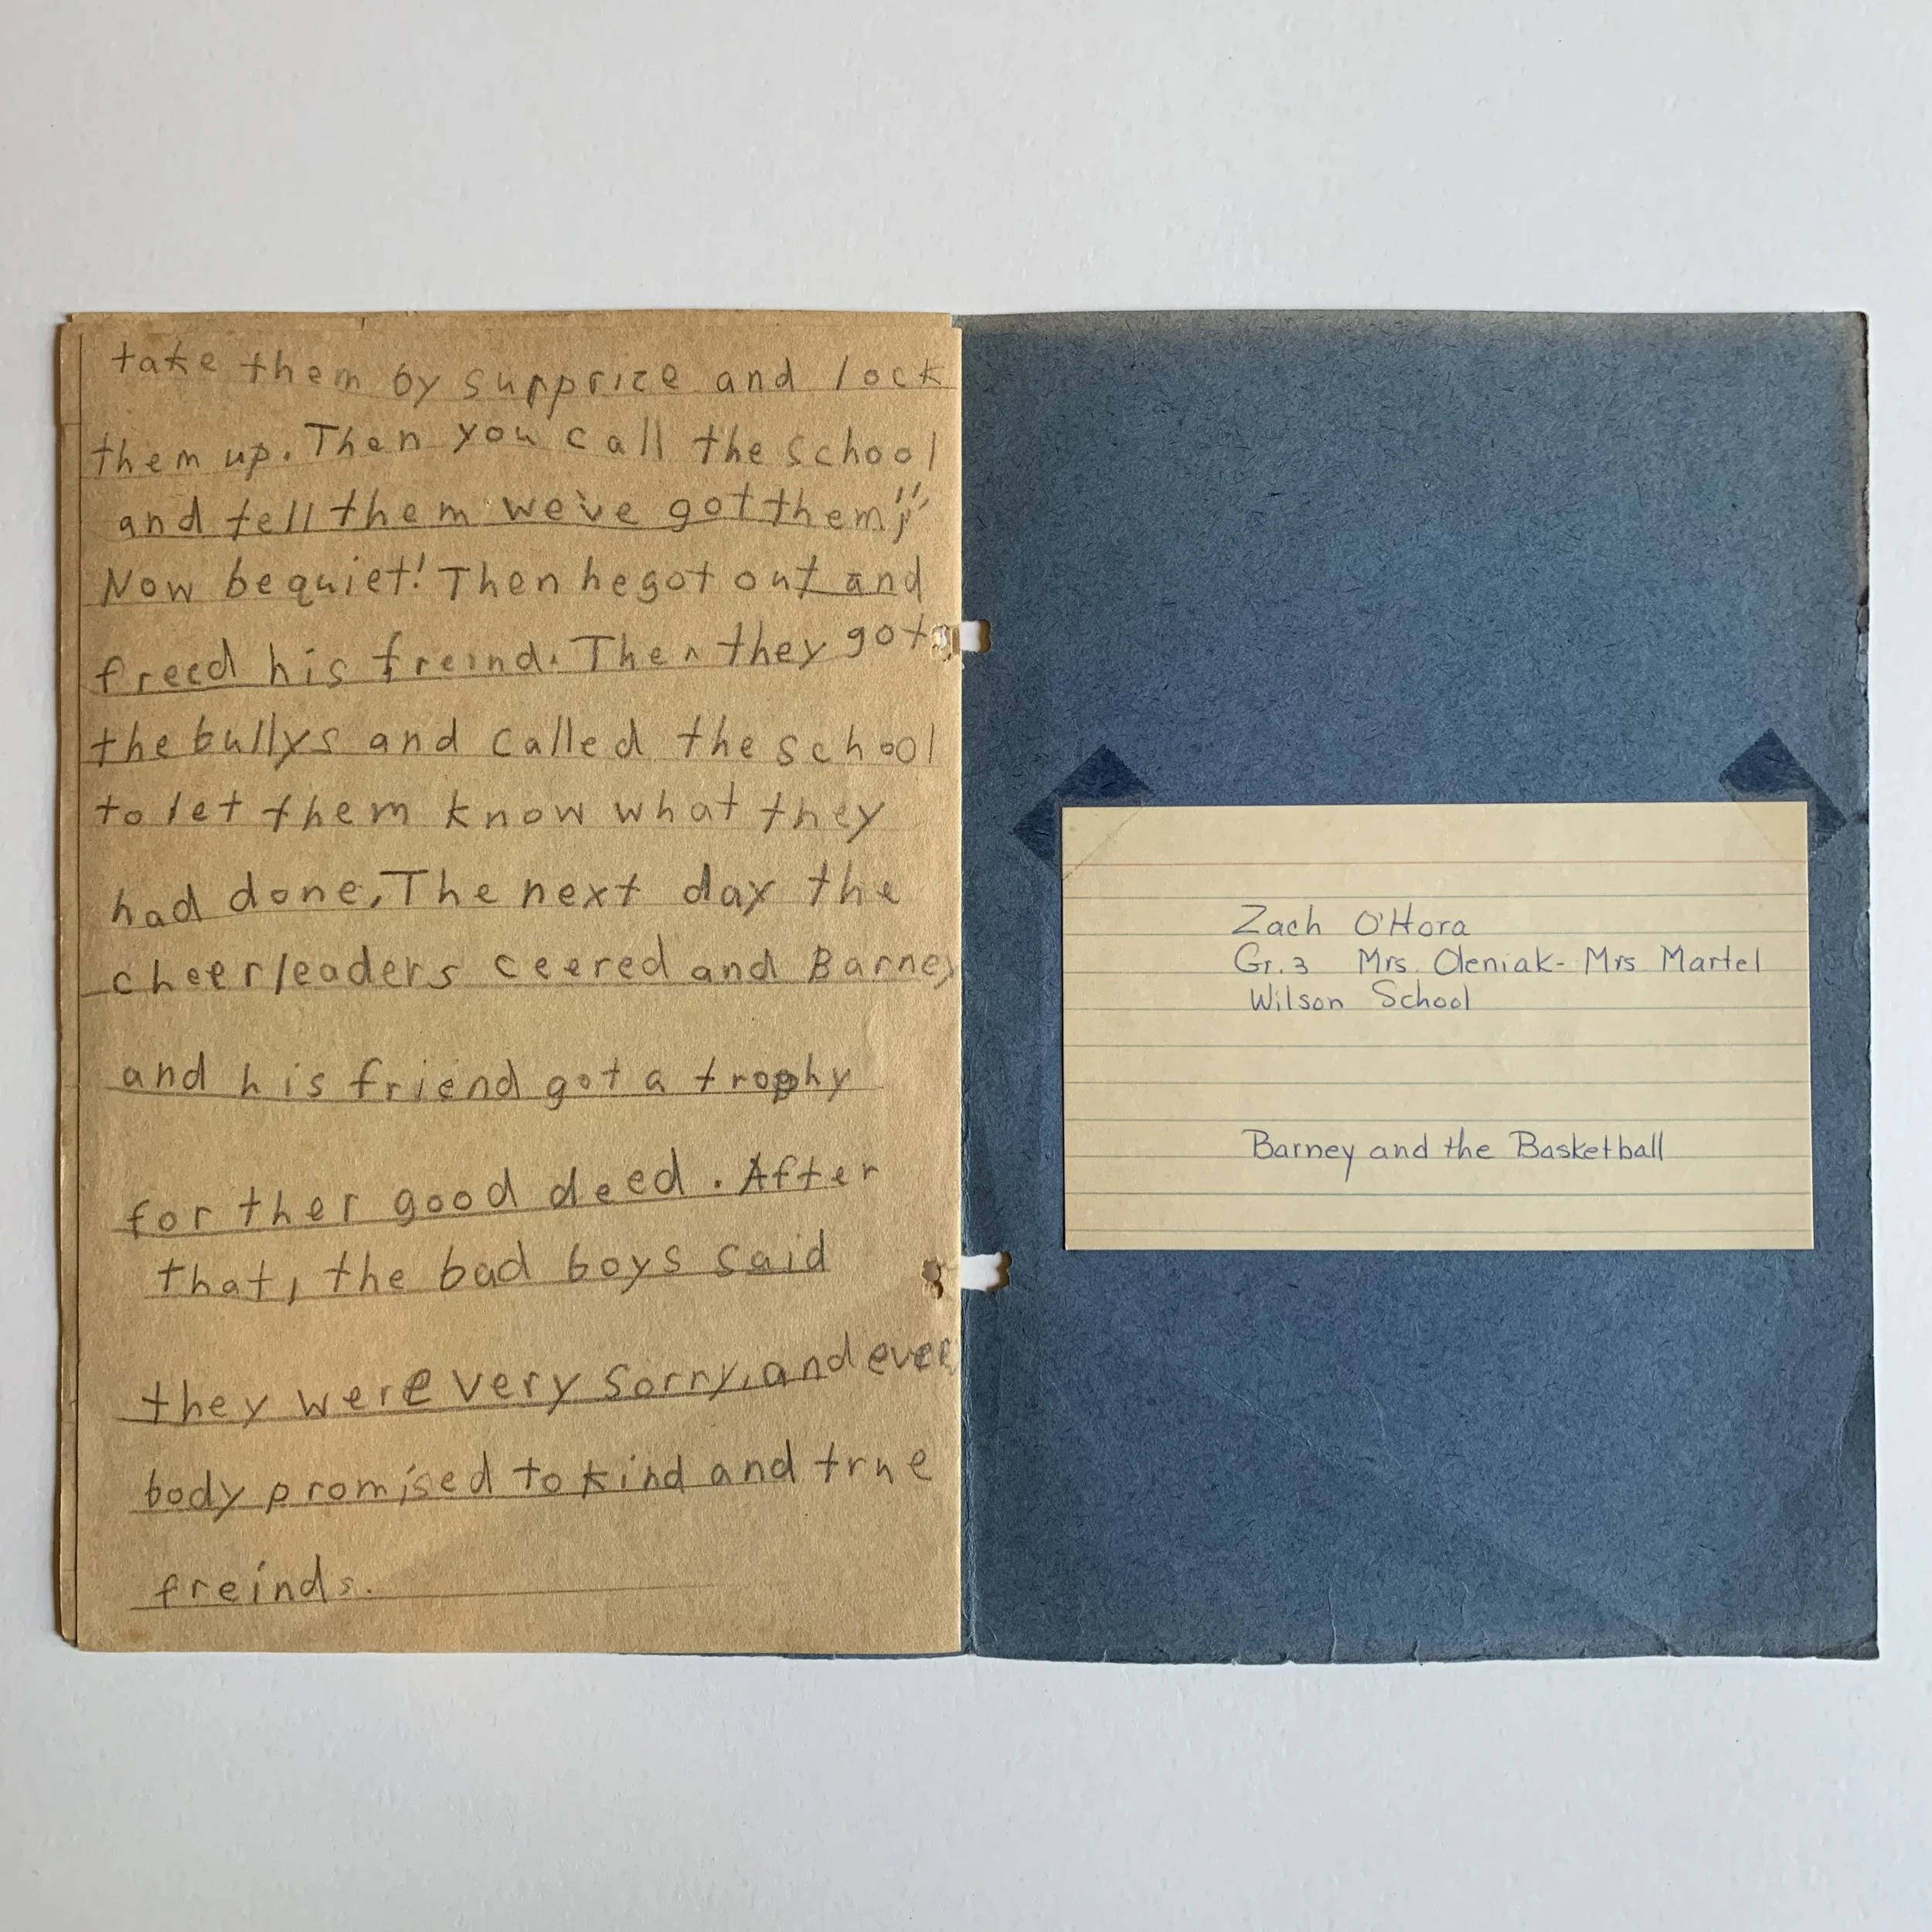 take them by supprize and lock
them up. Then you call the school
and tell them we've got them!"
Now be quiet! Then he got out and
freed his freind. Then they got
the bullys and called the school
to let them know what they
had done. The next day the
cheerleaders ceered and Barney
and his friend got a trophy
for ther good deed. After
that, the bad boys said
they were very sorry, and ever
body promised to kind and true
freinds.
Zach O'Hora
Gr. 3 Mrs. Oleniak - Mrs Martel
Wilson School
Barney and the Basketball